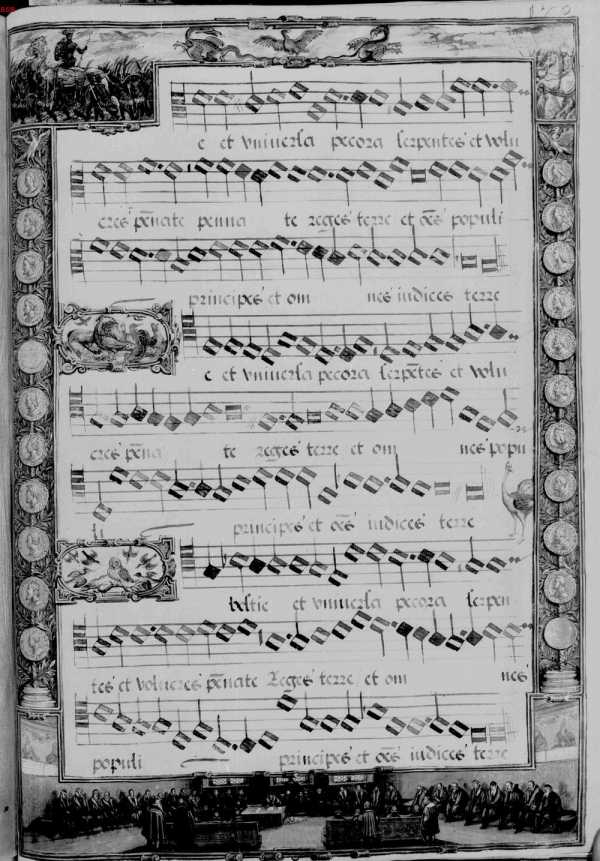 e et vniuersa pecora serpentes et volu
cres pēnate penna te reges terre et oēs populi
principes et om nes iudices terre
e et vniuersa pecora serpētes et volu
cres pēna te reges terre et om nes popu
li principes et oēs iudices terre
bestie et vniuersa pecora serpen
tes et volucres pēnate Reges terre et om nes
populi principes et oēs iudices terre